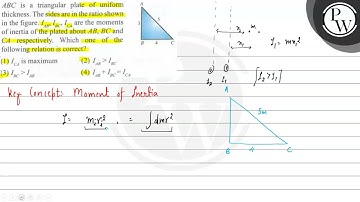 ABC is a triangular plate of uniform
thickness. The sides are in the ratio shown
in the figure. I_AB, I_BC, I_CA are the moments
of inertia of the plated about AB, BC and
CA respectively. Which one of the
following relation is correct?
(1) I_CA is maximum
(2) I_AB > I_BC
(3) I_BC > I_AB
(4) I_AB + I_BC = I_CA
B 4 C
Key Concept: Moment of Inertia
I = m_i r_i², = ∫dm r²
r_2, m.
r_1
I_1 = mr_1²
I_2 I_1
[I_2 > I_1]
A
5m
B 4 C
PW